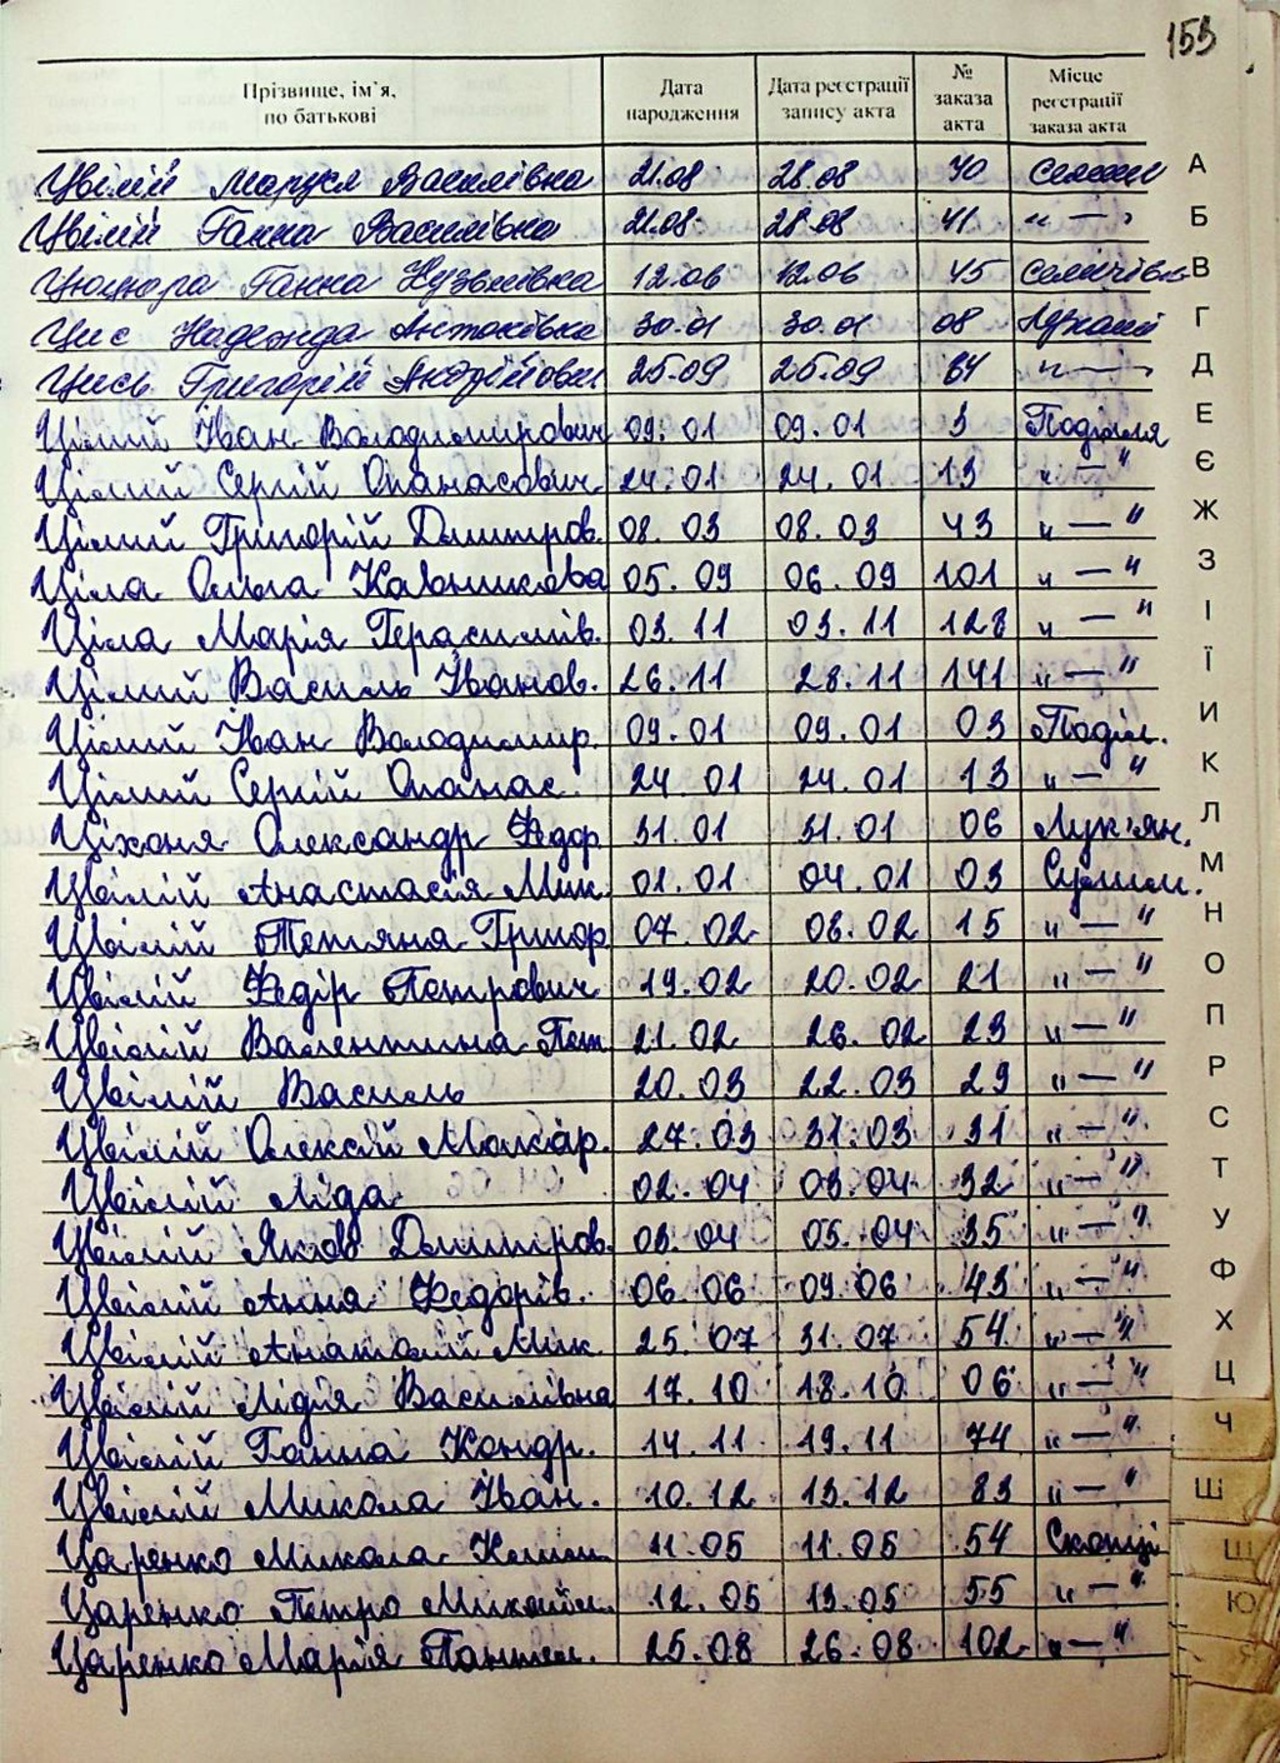 153
Прізвище, ім'я, по батькові Дата народження Дата реєстрації запису акта № заказа акта Місце реєстрації заказа акта
Цвілій Маруся Василівна 21.08 28.08 40
Цвілій Ганна Василівна 21.08 28.08 41 " — "
Цюцюра Ганна Кузьмівна 12.06 12.06 45
Цис Надежда Антонівна 30.01 30.01 08
Цись Григорій Андрійович 25.09 25.09 84 " — "
Цілий Іван Володимирович 09.01 09.01 3 Поділля
Цілий Сергій Опанасович 24.01 24.01 13 " — "
Цілий Григорій Дмитров. 08.03 08.03 43 " — "
Ціла Ольга 05.09 06.09 101 " — "
Ціла Марія Герасимів. 03.11 03.11 128 " — "
Цілий Василь Іванов. 26.11 28.11 141 " — "
Цілий Іван Володимир. 09.01 09.01 03 Поділ.
Цілий Сергій Опанас. 24.01 24.01 13 " — "
Ціхоня Олександр Федор 31.01 31.01 06 Лук'ян.
Цвілій Анастасія Мик. 01.01 04.01 03
Цвілій Тетяна Григор 07.02 08.02 15 " — "
Цвілій Федір Петрович 19.02 20.02 21 " — "
Цвілій Валентина Пет 21.02 26.02 23 " — "
Цвілій Василь 20.03 22.03 29 " — "
Цвілій Олексій Макар. 27.03 31.03 31 " — "
Цвілій Ліда 02.04 03.04 32 " — "
Цвілій Яков Дмитров. 03.04 05.04 35 " — "
Цвілій Анна Федорів. 06.06 09.06 43 " — "
Цвілій Анатолій Мик. 25.07 31.07 54 " — "
Цвілій Лідія Василівна 17.10 18.10 06 " — "
Цвілій Ганна Кондр. 14.11 19.11 74 " — "
Цвілій Микола Іван. 10.12 13.12 83 " — "
Царенко Микола 11.05 11.05 54
Царенко Петро Михайл. 12.05 13.05 55 " — "
Царенко Марія Пантел. 25.08 26.08 102 " — "
А
Б
В
Г
Д
Е
Є
Ж
З
І
Ї
И
К
Л
М
Н
О
П
Р
С
Т
У
Ф
Х
Ц
Ч
Ш
Щ
Ю
Я